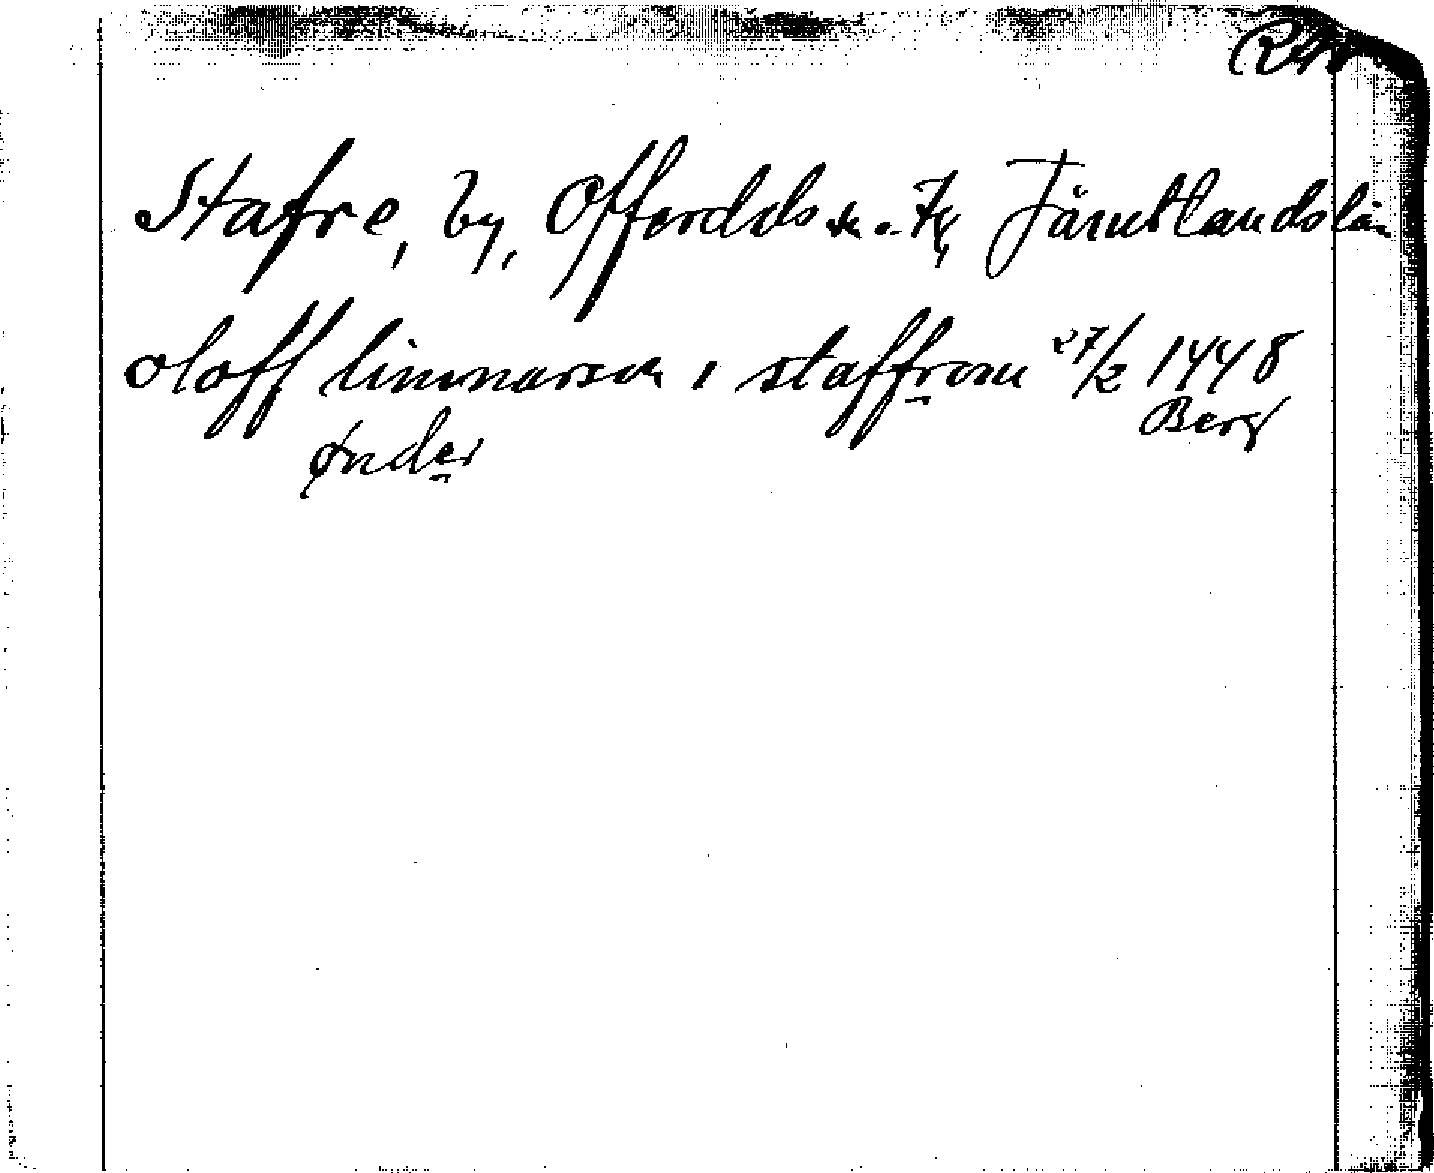 Stafre, by, Offerdals sn. Jämtlands län
oloff linnnarson i staffrom 27/2 1448
Berg